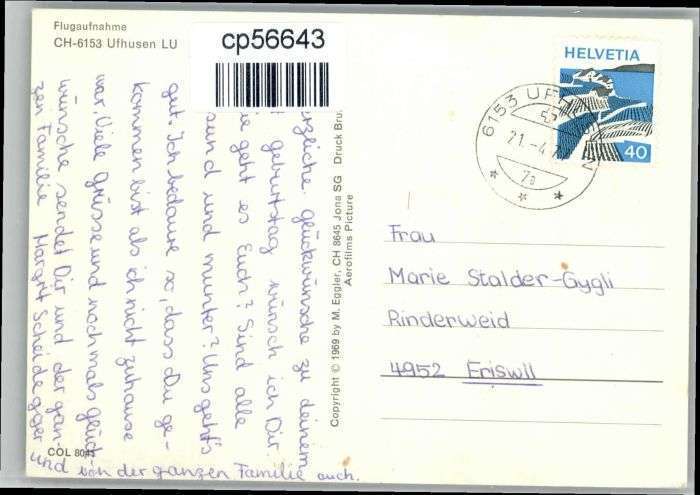 Flugaufnahme
CH-6153 Ufhusen LU
cp56643
HELVETIA
40
6153 UFH
21.-4.7
7a
rzliche Glückwünsche zu deinem
geburtstag wünsch ich Dir.
ie geht es Euch? Sind alle
sund und munter? Uns geht's
gut. Ich bedaure so, dass Du ge-
kommen bist als ich nicht zuhause
war. Viele Grüsse und nochmals glück
wünsche sendet Dir und der gan-
zen Familie Margrit Scheidegger
und von der ganzen Familie auch.
COL 8043
Copyright © 1969 by M. Eggler, CH 8645 Jona SG Druck Bru
Aerofilms Picture
Frau
Marie Stalder-Gygli
Rinderweid
4952 Eriswil